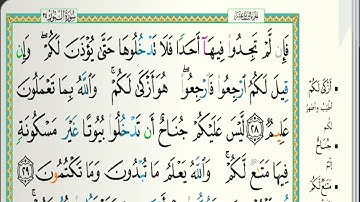 سُورَةُ النُّورِ
فَإِن لَّمْ تَجِدُوا۟ فِيهَآ أَحَدًا فَلَا تَدْخُلُوهَا حَتَّىٰ يُؤْذَنَ لَكُمْ ۖ وَإِن
قِيلَ لَكُمُ ٱرْجِعُوا۟ فَٱرْجِعُوا۟ ۖ هُوَ أَزْكَىٰ لَكُمْ ۚ وَٱللَّهُ بِمَا تَعْمَلُونَ
عَلِيمٌ ٢٨ لَّيْسَ عَلَيْكُمْ جُنَاحٌ أَن تَدْخُلُوا۟ بُيُوتًا غَيْرَ مَسْكُونَةٍ
فِيهَا مَتَٰعٌ لَّكُمْ ۚ وَٱللَّهُ يَعْلَمُ مَا تُبْدُونَ وَمَا تَكْتُمُونَ ٢٩
أَزْكَىٰ لَكُمْ
جُنَاحٌ
مَتَٰعٌ لَّكُمْ